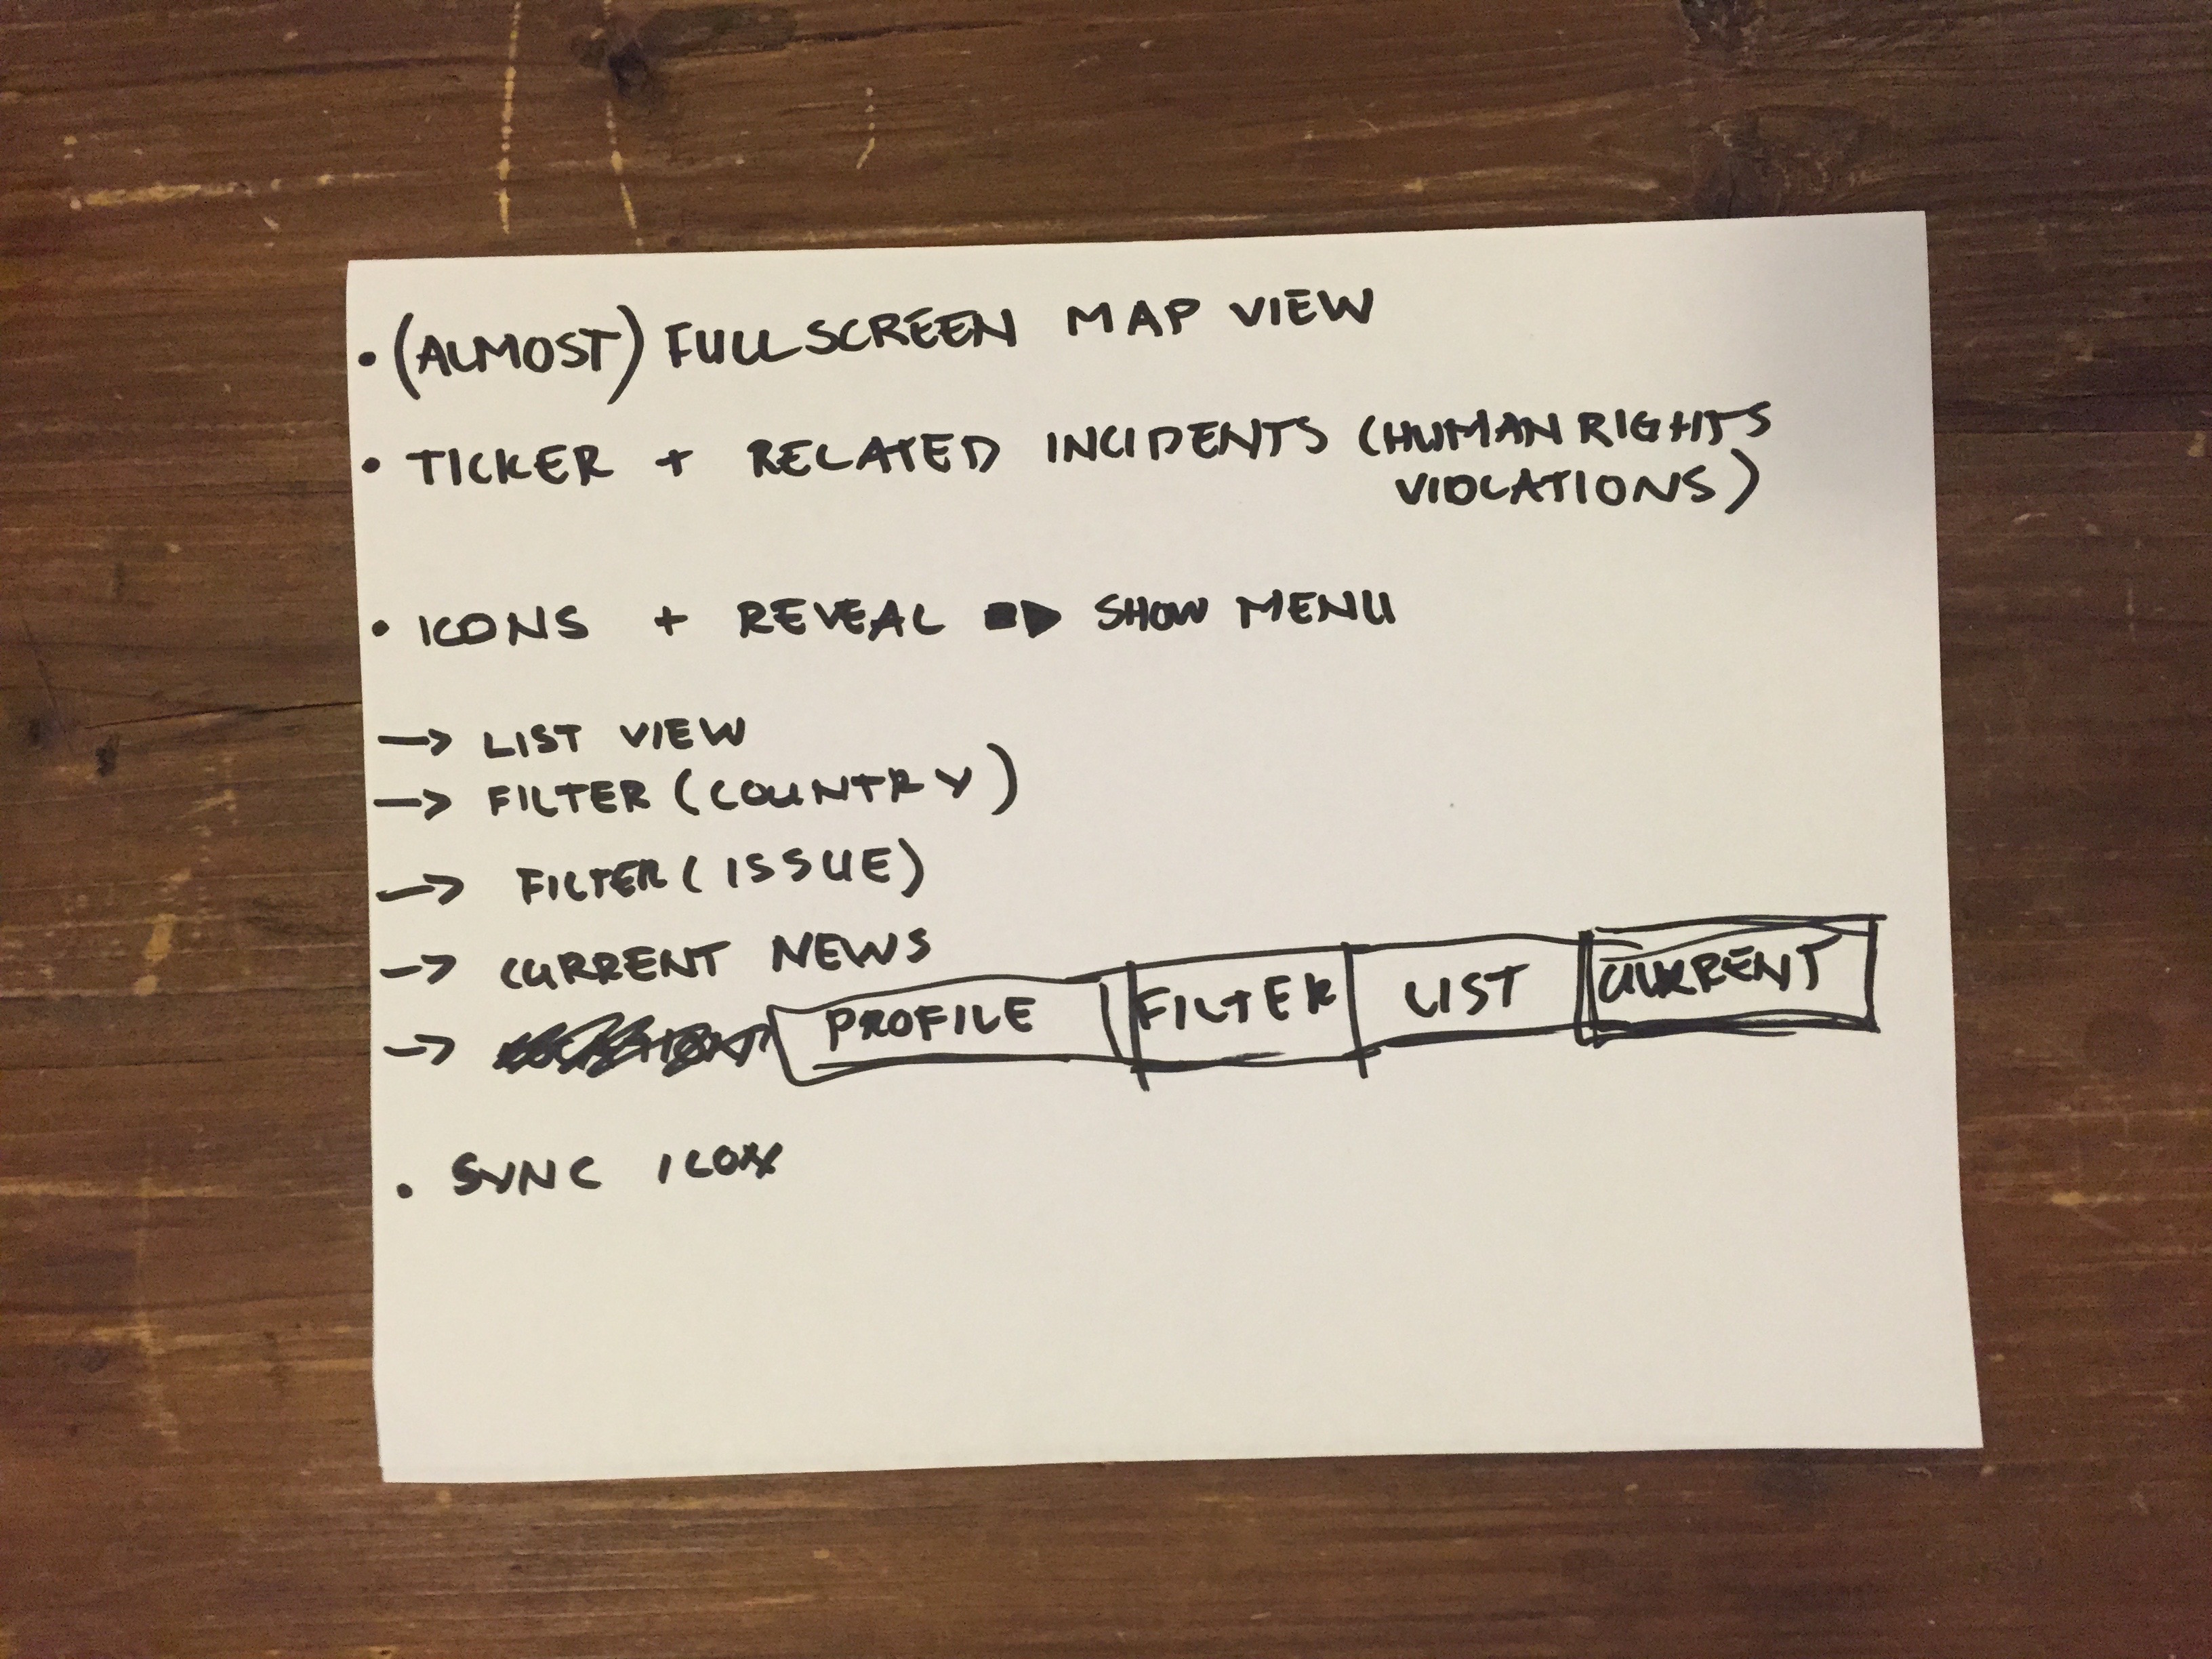 • (ALMOST) FULLSCREEN MAP VIEW
• TICKER + RELATED INCIDENTS (HUMAN RIGHTS
VIOLATIONS)
• ICONS + REVEAL ➡ SHOW MENU
→ LIST VIEW
→ FILTER (COUNTRY)
→ FILTER (ISSUE)
→ CURRENT NEWS
→ PROFILE FILTER LIST CURRENT
• SYNC ICON